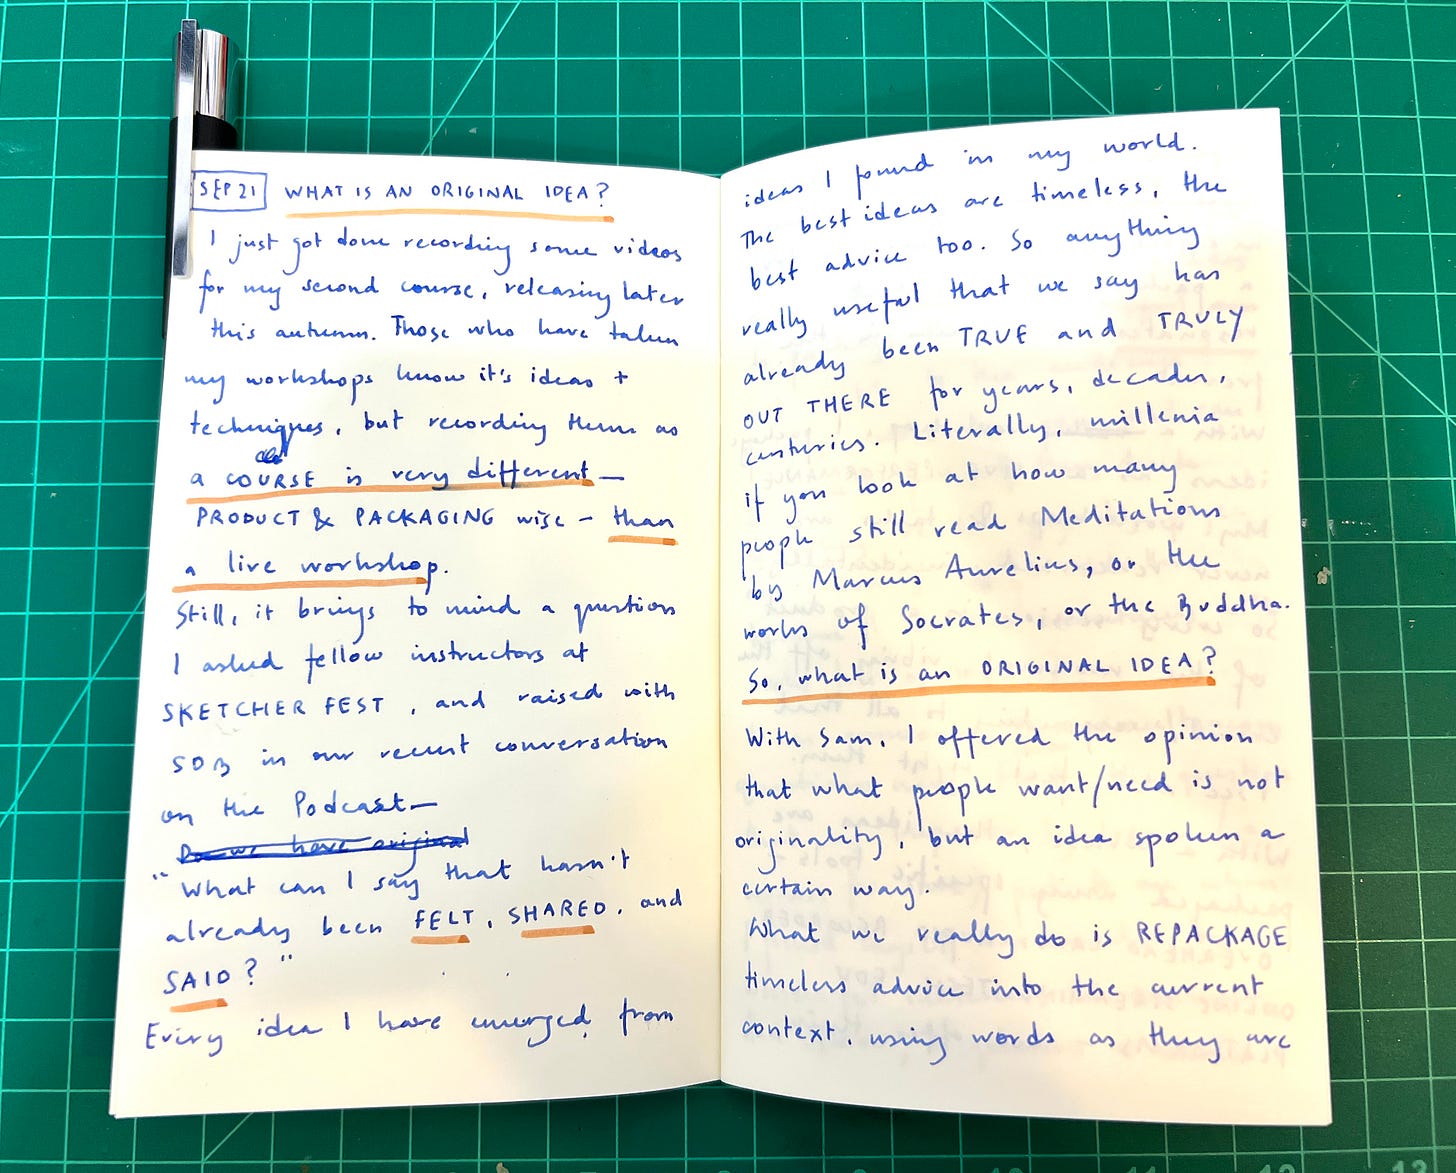 SEP 21 WHAT IS AN ORIGINAL IDEA?
I just got done recording some videos
for my second course, releasing later
this autumn. Those who have taken
my workshops know it's ideas +
techniques, but recording them as
a COURSE is very different—
PRODUCT & PACKAGING wise – than
a live workshop.
Still, it brings to mind a question
I asked fellow instructors at
SKETCHER FEST, and raised with
in our recent conversation
on the Podcast—
Do we have original
"What can I say that hasn't
already been FELT, SHARED, and
SAID?"
Every idea I have emerged from
ideas I found in my world.
The best ideas are timeless, the
best advice too. So anything
really useful that we say has
already been TRUE and TRULY
OUT THERE for years, decades,
centuries. Literally, millenia
if you look at how many
people still read Meditations
by Marcus Aurelius, or the
works of Socrates, or the Buddha.
So, what is an ORIGINAL IDEA?
With Sam, I offered the opinion
that what people want/need is not
originality, but an idea spoken a
certain way.
What we really do is REPACKAGE
timeless advice into the current
context, using words as they are